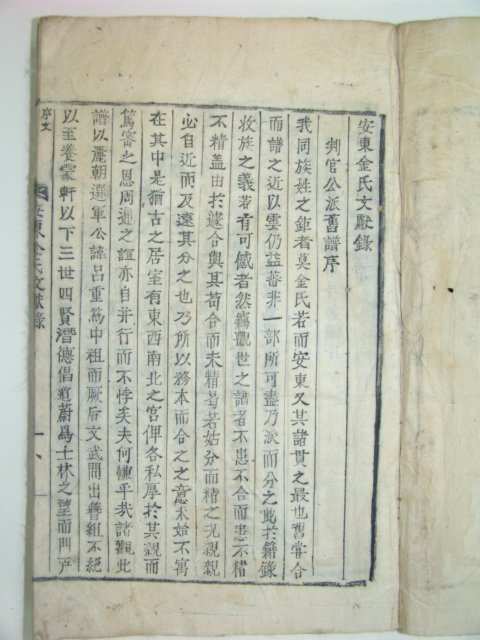 安東金氏文獻錄
判官公派舊譜序
我同族姓之鉅者莫金氏若而安東又其諸貫之最也舊嘗合
而譜之近以雲仍益蕃非一部所可盡乃派而分之此於籍錄
收族之義若有可憾者然竊觀世之譜者不患不合而患不精
不精盖由於遽合與其苟合而未精曷若姑分而精之况親親
必自近而及遠其分之也乃所以務本而合之之意未始不寓
在其中是猶古之居室有東西南北之宮俾各私厚於其親而
篤審之恩周遍之誼亦自并行而不悖矣夫何慊乎哉諸觀此
譜以麗朝選軍公諱呂重爲中祖而厥后文武間出簪組不絕
以至養蒙軒以下三世四賢潛德倡道蔚爲士林之望而門戶
序文
安東金氏文獻錄
一